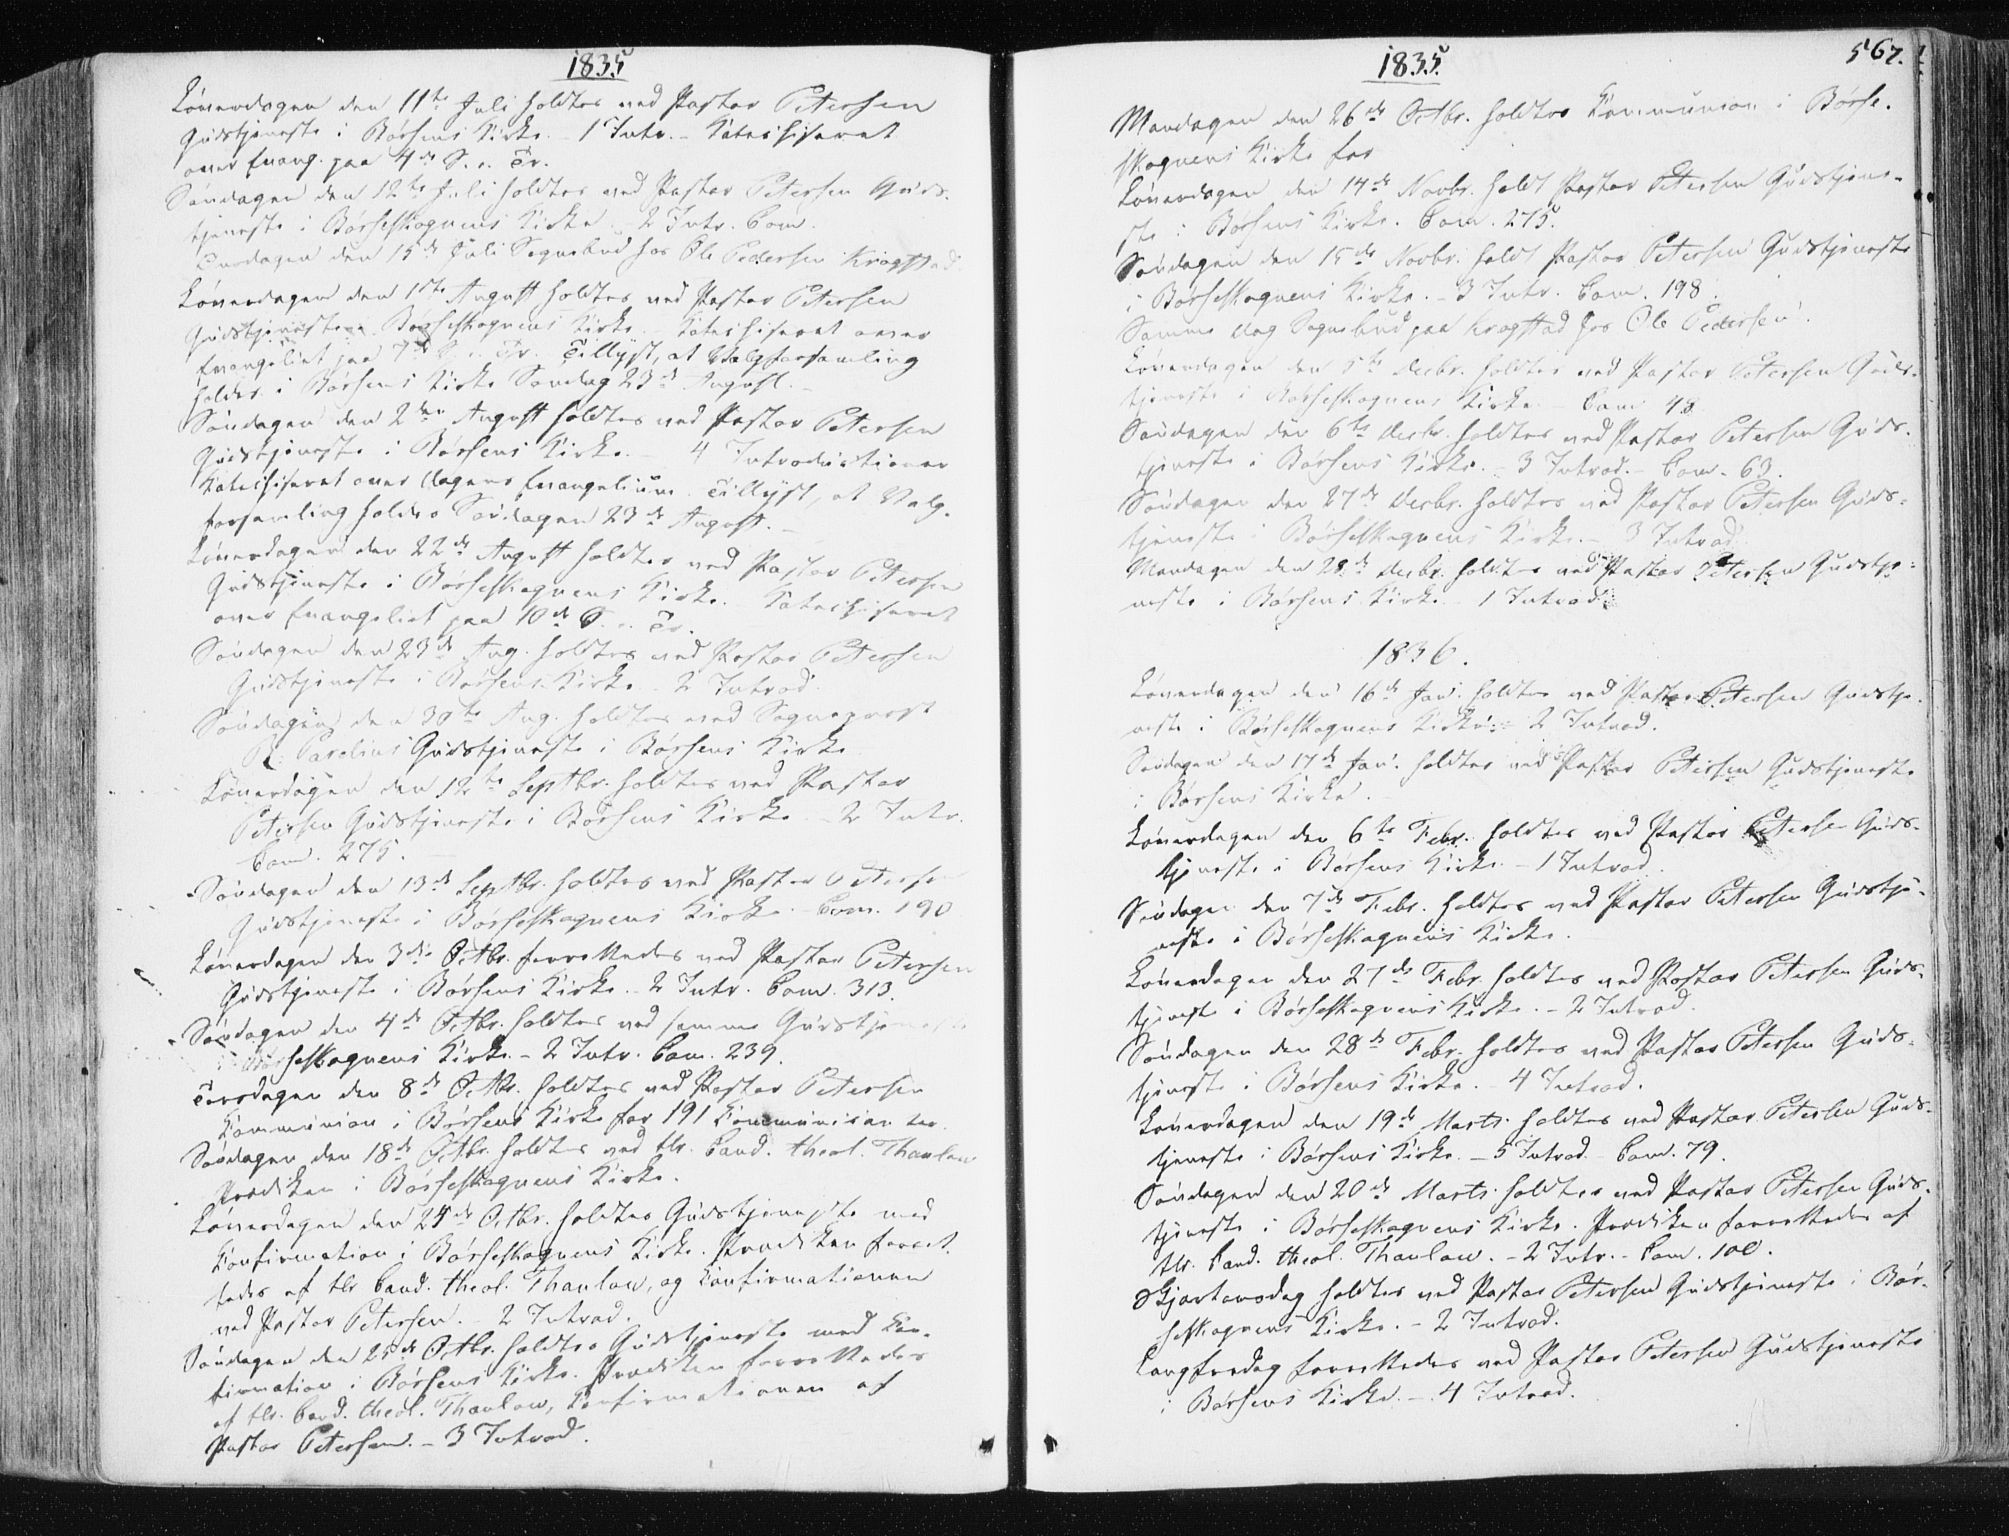 1835
Löverdagen den 11te Juli holdtes ved Pastor Petersen
Gudstjeneste i Börsens Kirke. - 1 Intr. - Katechiseret
over Evang. paa 4de S. e. Tr.
Söndagen den 12te Juli holdtes ved Pastor Petersen Guds-
tjeneste i Börseskognens Kirke. - 2 Intr. Com.
Onsdagen den 15de Juli Sognebud hos Ole Pedersen Krogstad.
Löverdagen den 1ste August holdtes ved Pastor Petersen
Gudstjeneste i Börseskognens Kirke. - Katechiseret over
Evangeliet paa 7de S. e. Tr. Tillyst, at Valgforsamling
holdes i Börsens Kirke Söndag 23de August. -
Söndagen den 2den August holdtes ved Pastor Petersen
Gudstjeneste i Börsens Kirke. - 4 Introductioner
Katechiseret over Dagens Evangelium. Tillyst, at Valg-
forsamling holdes Söndagen 23de August. -
Löverdagen den 22de August holdtes ved Pastor Petersen
Gudstjeneste i Börseskognens Kirke. Katechiseret
over Evangeliet paa 10de S. e. Tr.
Söndagen den 23de Aug. holdtes ved Pastor Petersen
Gudstjeneste i Börsens Kirke. - 2 Introd.
Söndagen den 30te Aug. holdtes ved Sogneprest
R. Parelius Gudstjeneste i Börsens Kirke
Löverdagen den 12te Septbr. holdtes ved Pastor
Petersen Gudstjeneste i Börsens Kirke - 2 Intr.
Com. 275. -
Söndagen den 13de Septbr. holdtes ved Pastor Petersen
Gudstjeneste i Börseskognens Kirke. - Com. 190
Löverdagen den 3die Octbr. forrettedes ved Pastor Petersen
Gudstjeneste i Börsens Kirke. - 2 Intr. Com. 313.
Söndagen den 4de Octbr. holdtes ved samme Gudstjeneste
i Börseskognens Kirke. - 2 Intr. Com. 239.
Torsdagen den 8de Octbr. holdtes ved Pastor Petersen
Communion i Börsens Kirke for 191 Communicanter.
Söndagen den 18de Octbr. holdtes ved Hr. Cand. theol. Thaulow
Prædiken i Börseskognens Kirke.
Löverdagen den 24de Octbr. holdtes Gudstjeneste med
Confirmation i Börseskognens Kirke. Prædiken forret-
tedes af Hr Cand. theol. Thaulow, og Confirmationen
ved Pastor Petersen. - 2 Introd.
Söndagen den 25de Octbr. holdtes Gudstjeneste med Con-
firmation i Börsens Kirke. Prædiken forrettedes
af Hr. Cand. theol. Thaulow, Confirmationen af
Pastor Petersen. - 3 Introd.
1835.
567.
Mandagen den 26de Octbr. holdtes Communion i Börse-
skognens Kirke for
Löverdagen den 14de Novbr. holdt Pastor Petersen Gudstjene-
ste i Börsens Kirke. Com. 275.
Söndagen den 15de Novbr. holdt Pastor Petersen Gudstjeneste
i Börseskognens Kirke. - 3 Intr. Com. 198.
Samme Dag Sognebud paa Krogstad hos Ole Pedersen.
Löverdagen den 5te Decbr. holdtes ved Pastor Petersen Guds-
tjeneste i Börseskognens Kirke. Com. 48
Söndagen den 6te Decbr. holdtes ved Pastor Petersen Guds-
tjeneste i Börsens Kirke. - 3 Introd. - Com. 63.
Söndagen den 27de Decbr. holdtes ved Pastor Petersen Guds-
tjeneste i Börseskognens Kirke. - 3 Introd.
Mandagen den 28de Decbr. holdtes ved Pastor Petersen Gudstje-
neste i Börsens Kirke - 1 Introd.
1836.
Löverdagen den 16de Jan. holdtes ved Pastor Petersen Gudstje-
neste i Börseskognens Kirke. - 2 Introd.
Söndagen den 17de Jan. holdtes ved Pastor Petersen Gudstjeneste
i Börsens Kirke.
Löverdagen den 6te Febr. holdtes ved Pastor Petersen Guds-
tjeneste i Börsens Kirke. - 1 Introd.
Söndagen den 7de Febr. holdtes ved Pastor Petersen Gudstje-
neste i Börseskognens Kirke.
Löverdagen den 27de Febr. holdtes ved Pastor Petersen Guds-
tjeneste i Börseskognens Kirke. - 2 Introd.
Söndagen den 28de Febr. holdtes ved Pastor Petersen Guds-
tjeneste i Börsens Kirke. - 4 Introd.
Löverdagen den 19de Marts holdtes ved Pastor Petersen Guds-
tjeneste i Börsens Kirke. - 5 Introd. - Com. 79.
Söndagen den 20de Marts holdtes ved Pastor Petersen Guds-
tjeneste i Börseskognens Kirke. Prædiken forrettedes af
Hr. Cand. theol. Thaulow. - 2 Intr. - Com. 100.
Skjærtorsdag holdtes ved Pastor Petersen Gudstjeneste i Bör-
seskognens Kirke. - 2 Introd.
Langfredag forrettedes ved Pastor Petersen Gudstjeneste
i Börsens Kirke. - 4 Introd.